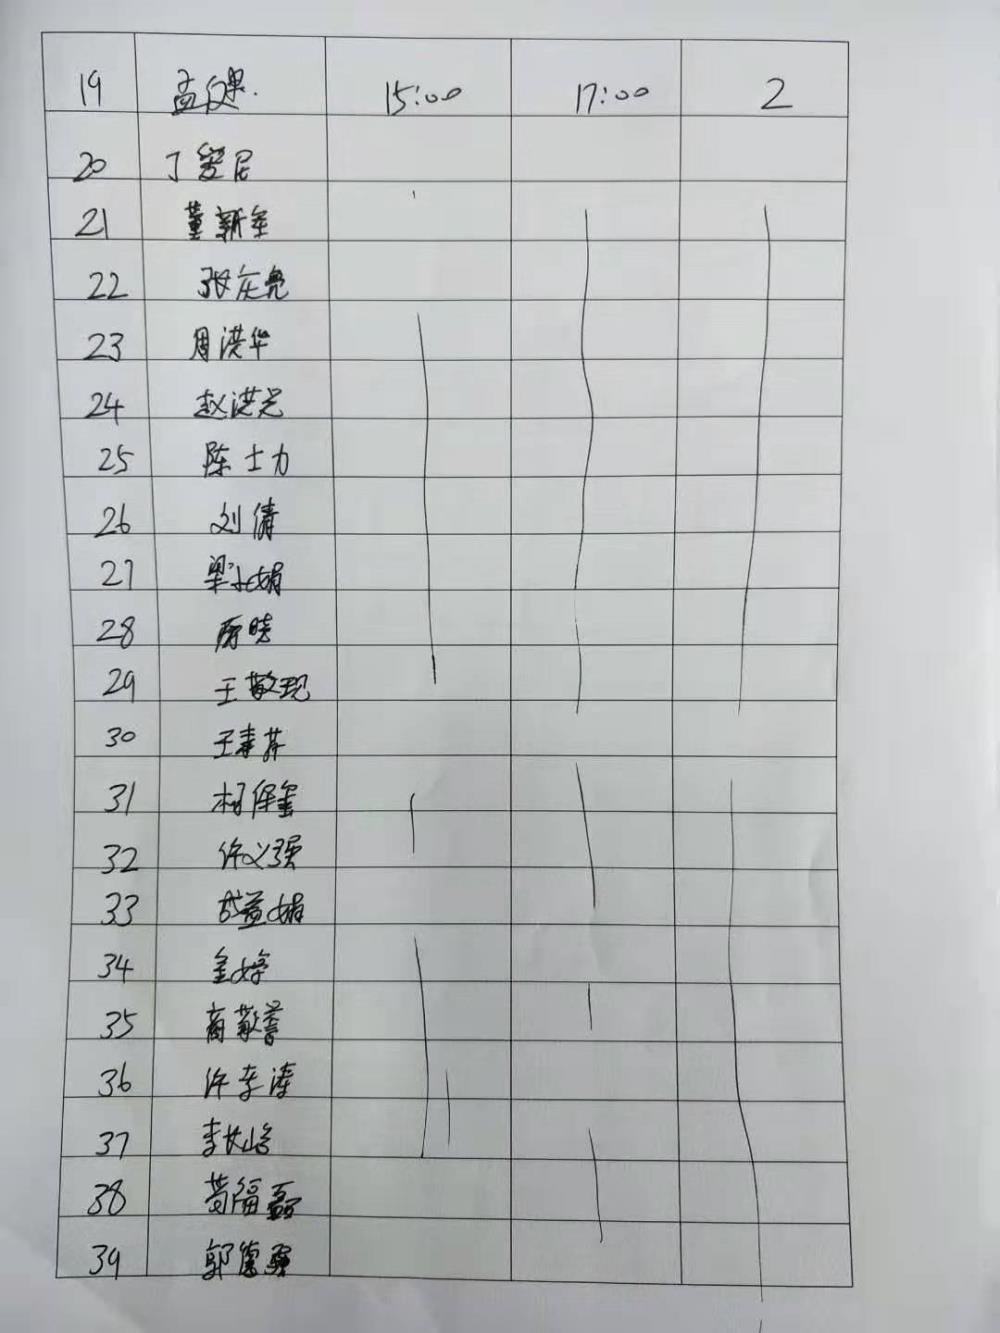 19 孟 15:00 17:00 2
20 丁
21 董新年
22 张庆亮
23 周洪华
24 赵洪光
25 陈士力
26 刘倩
27 梁小娟
28 晓
29 王敬现
30 王春芹
31
32 许义强
33 娟
34 金婷
35 商敬
36 许李涛
37 李
38 葛福磊
39 郭